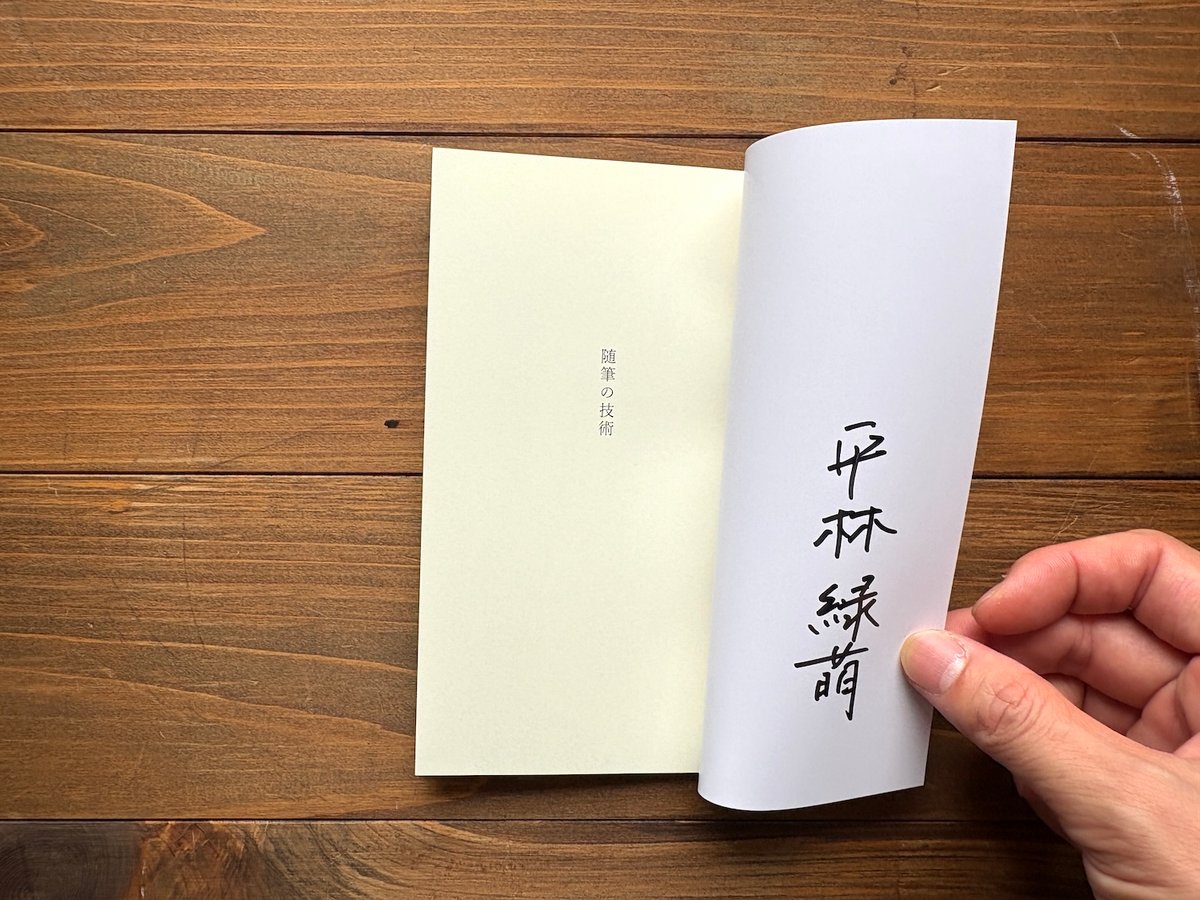 随筆の技術
平林緑萌